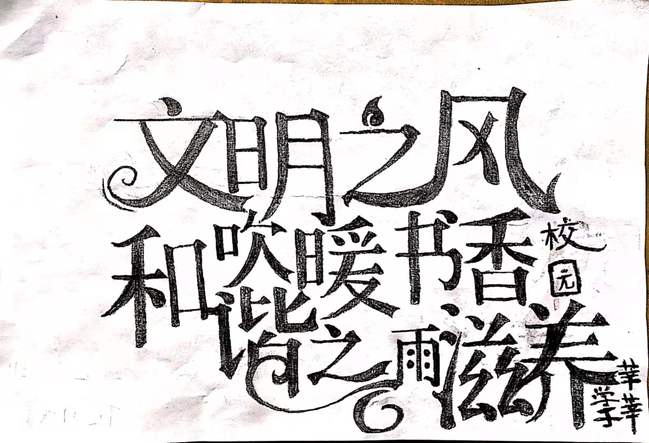 文明之风
吹暖书香校园
和谐之雨
滋养莘莘学子